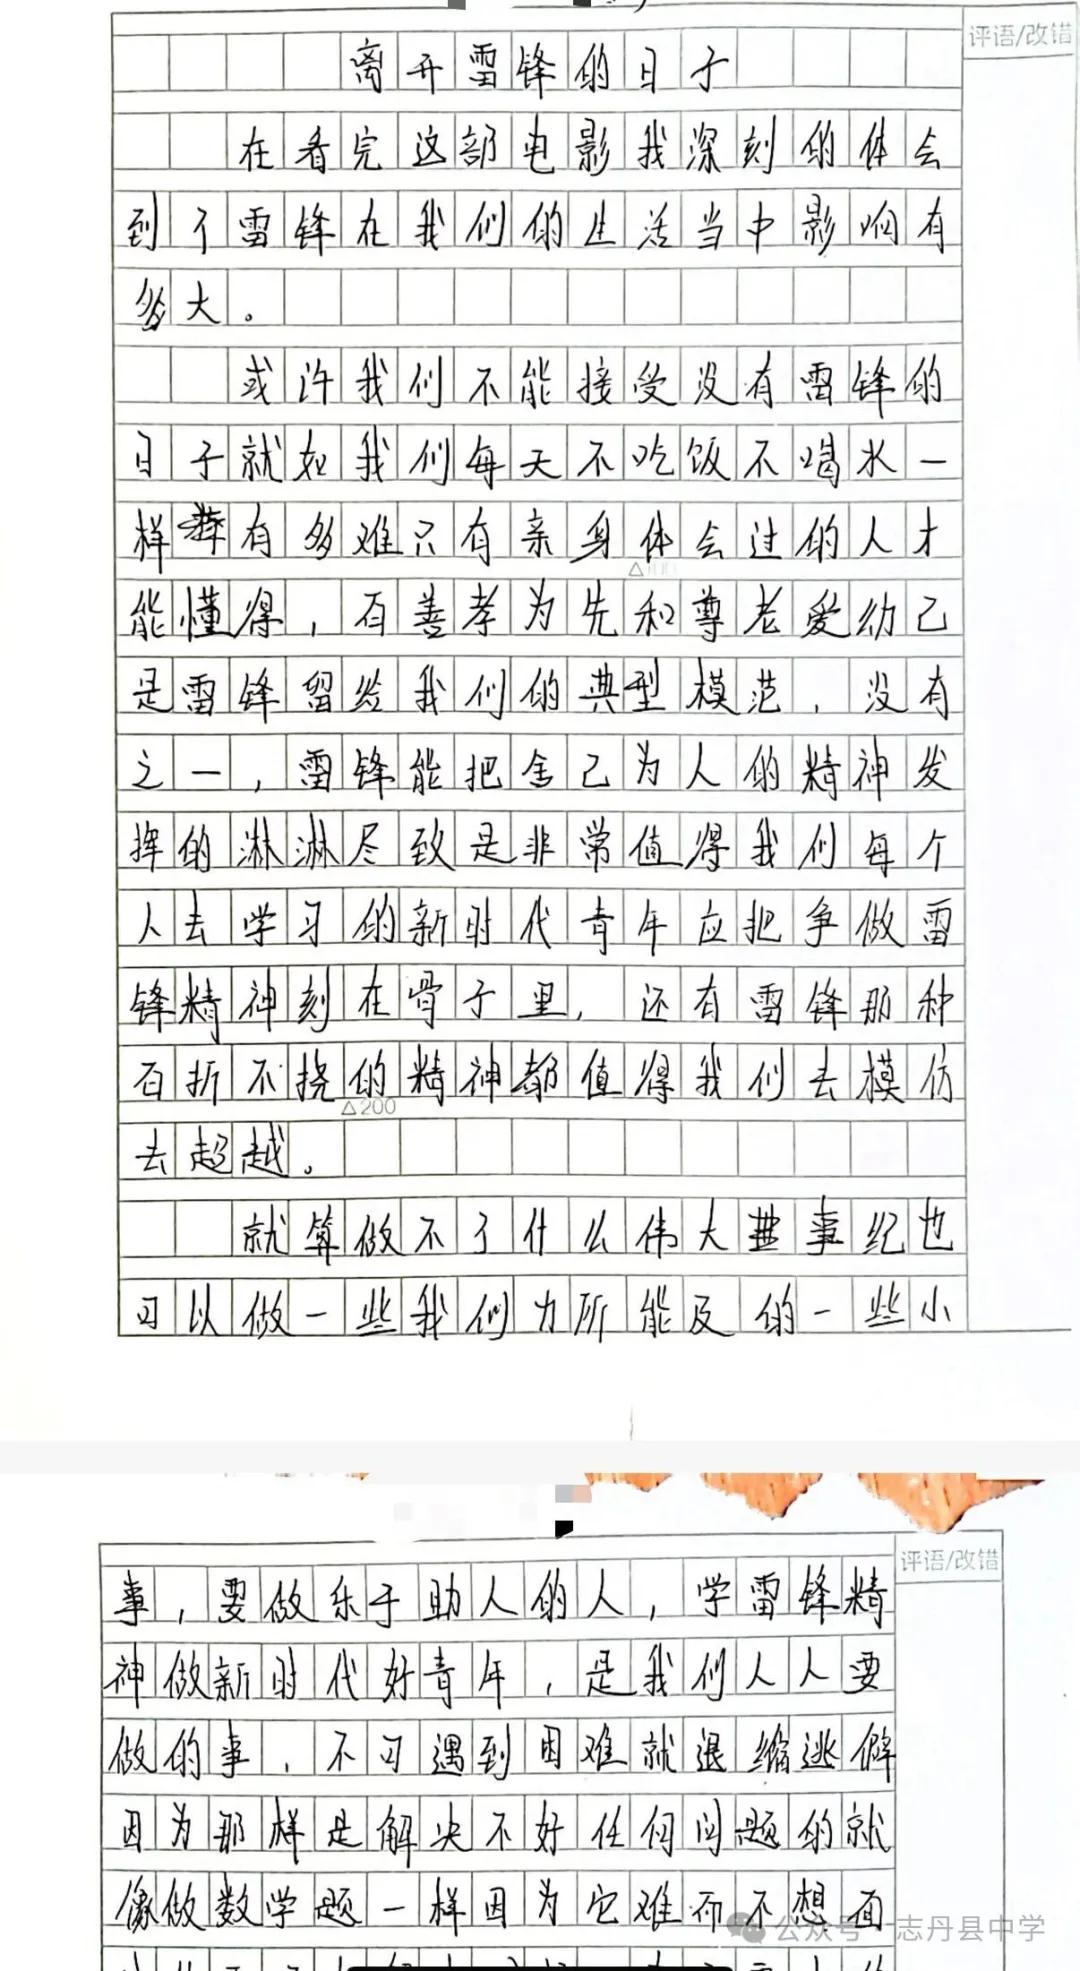 评语/改错
离开雷锋的日子
在看完这部电影我深刻的体会
到了雷锋在我们的生活当中影响有
多大。
或许我们不能接受没有雷锋的
日子就如我们每天不吃饭不喝水一
样 有多难只有亲身体会过的人才
能懂得，百善孝为先和尊老爱幼己
是雷锋留给我们的典型模范，没有
之一，雷锋能把舍己为人的精神发
挥的淋淋尽致是非常值得我们每个
人去学习的新时代青年应把争做雷
锋精神刻在骨子里，还有雷锋那种
百折不挠的精神都值得我们去模仿
△200
去超越。
就算做不了什么伟大 事纪也
可以做一些我们力所能及的一些小
评语/改错
事，要做乐于助人的人，学雷锋精
神做新时代好青年，是我们人人要
做的事，不可遇到困难就退缩逃僻
因为那样是解决不好任何问题的就
像做数学题一样因为它难而不想面
公众号 志丹县中学